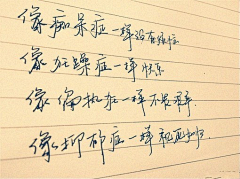 像痴呆症一样没有烦恼
像狂躁症一样快乐
像偏执狂一样不畏艰辛
像抑郁症一样视死如归